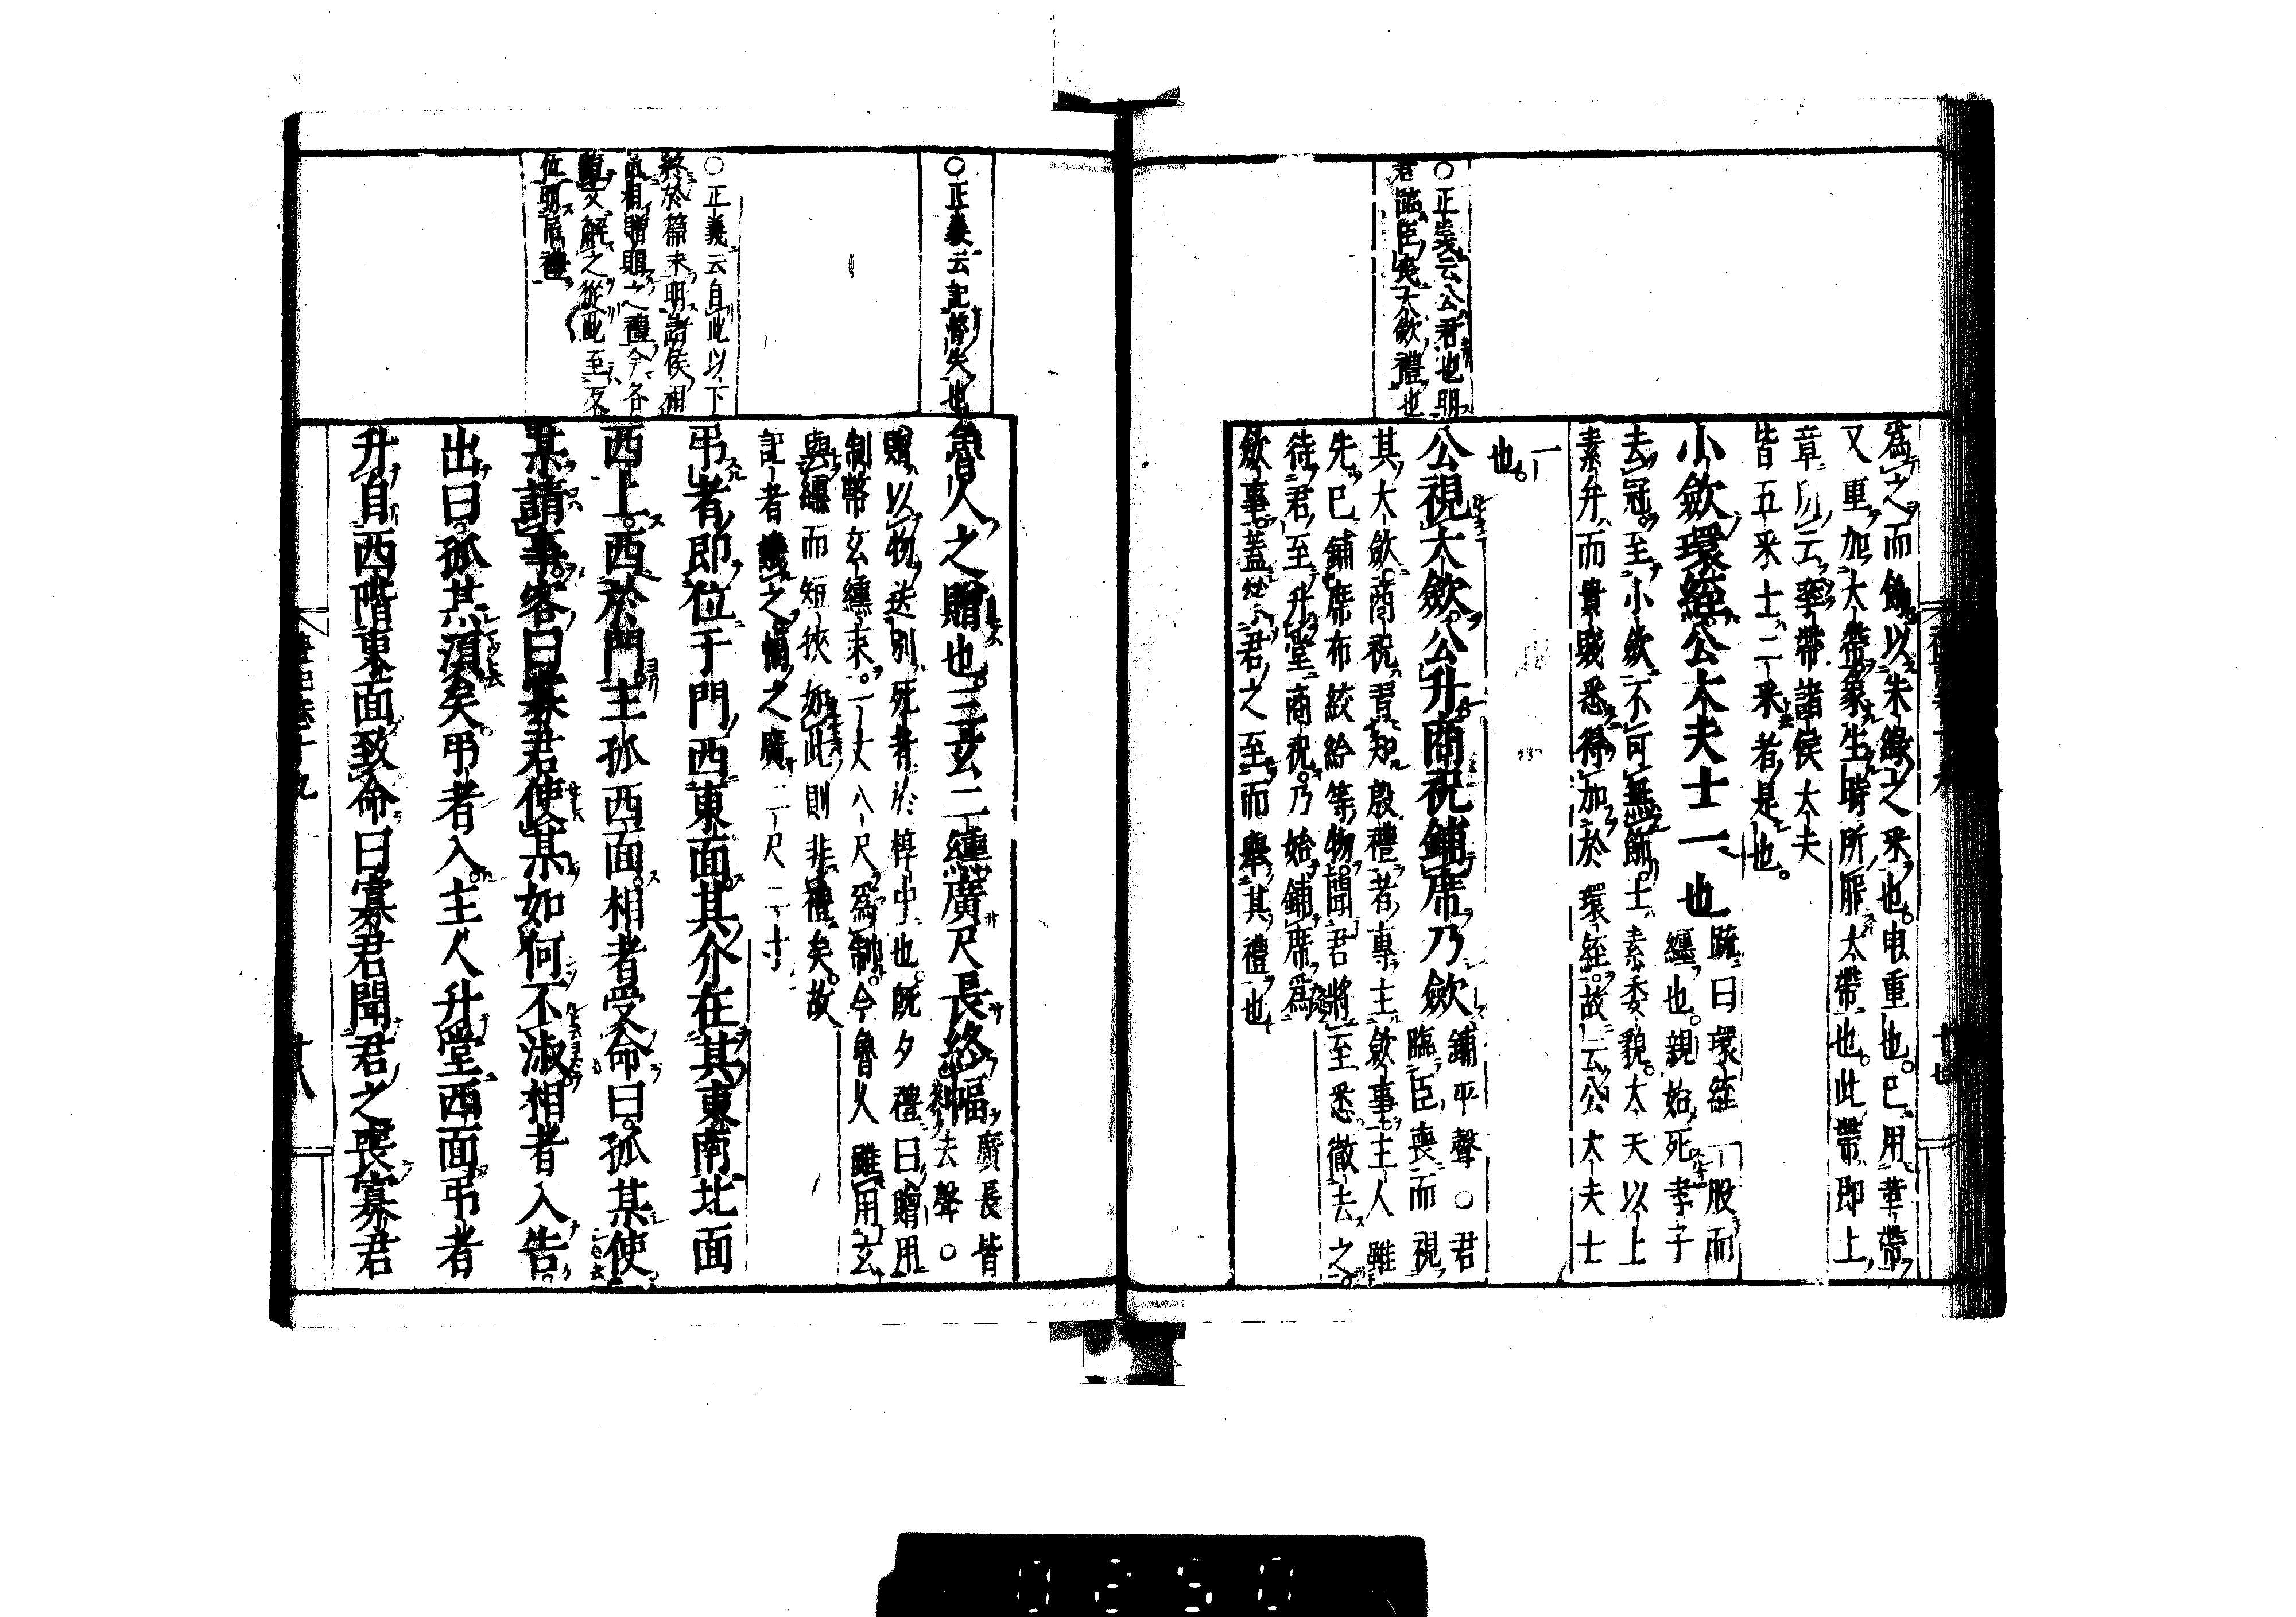 ○正義云公君也明
君臨臣喪大斂禮也
為之而飾以朱綠之采也申重也已用革帶
又重加大帶象生時所服大帶也此帶即上
章所云率帶諸侯大夫
皆五采士二采者是也
小斂環絰公大夫士一也
疏曰環絰一股而
纏也親始死孝子
去冠至小斂不可無飾士素委貌大夫以上
素弁而貴賤悉得加於環絰故云公大夫士
一也
公視大斂公升商祝鋪席乃斂
鋪平聲○君
臨臣喪而視
其大斂商祝習知殷禮者專主斂事主人雖
先已鋪席布絞紟等物聞君將至悉徹去之
待君至升堂商祝乃始鋪席為
斂事蓋榮君之至而舉其禮也
○正義云記魯失也
○正義云自此以下
終於篇末明諸侯相
弔相贈賵之禮今各
隨文解之從此至反
位明弔禮
魯人之贈也三玄二纁廣尺長終幅
廣長皆
去聲○
贈以物送別死者於椁中也既夕禮曰贈用
制幣玄纁束一丈八尺為制今魯人雖用玄
與纁而短狹如此則非禮矣故
記者譏之幅之廣二尺二寸
弔者即位于門西東面其介在其東南北面
西上西於門主孤西面相者受命曰孤某使
某請事客曰寡君使某如何不淑相者入告
出曰孤某須矣弔者入主人升堂西面弔者
升自西階東面致命曰寡君聞君之喪寡君
禮記卷十九
廿八
0250